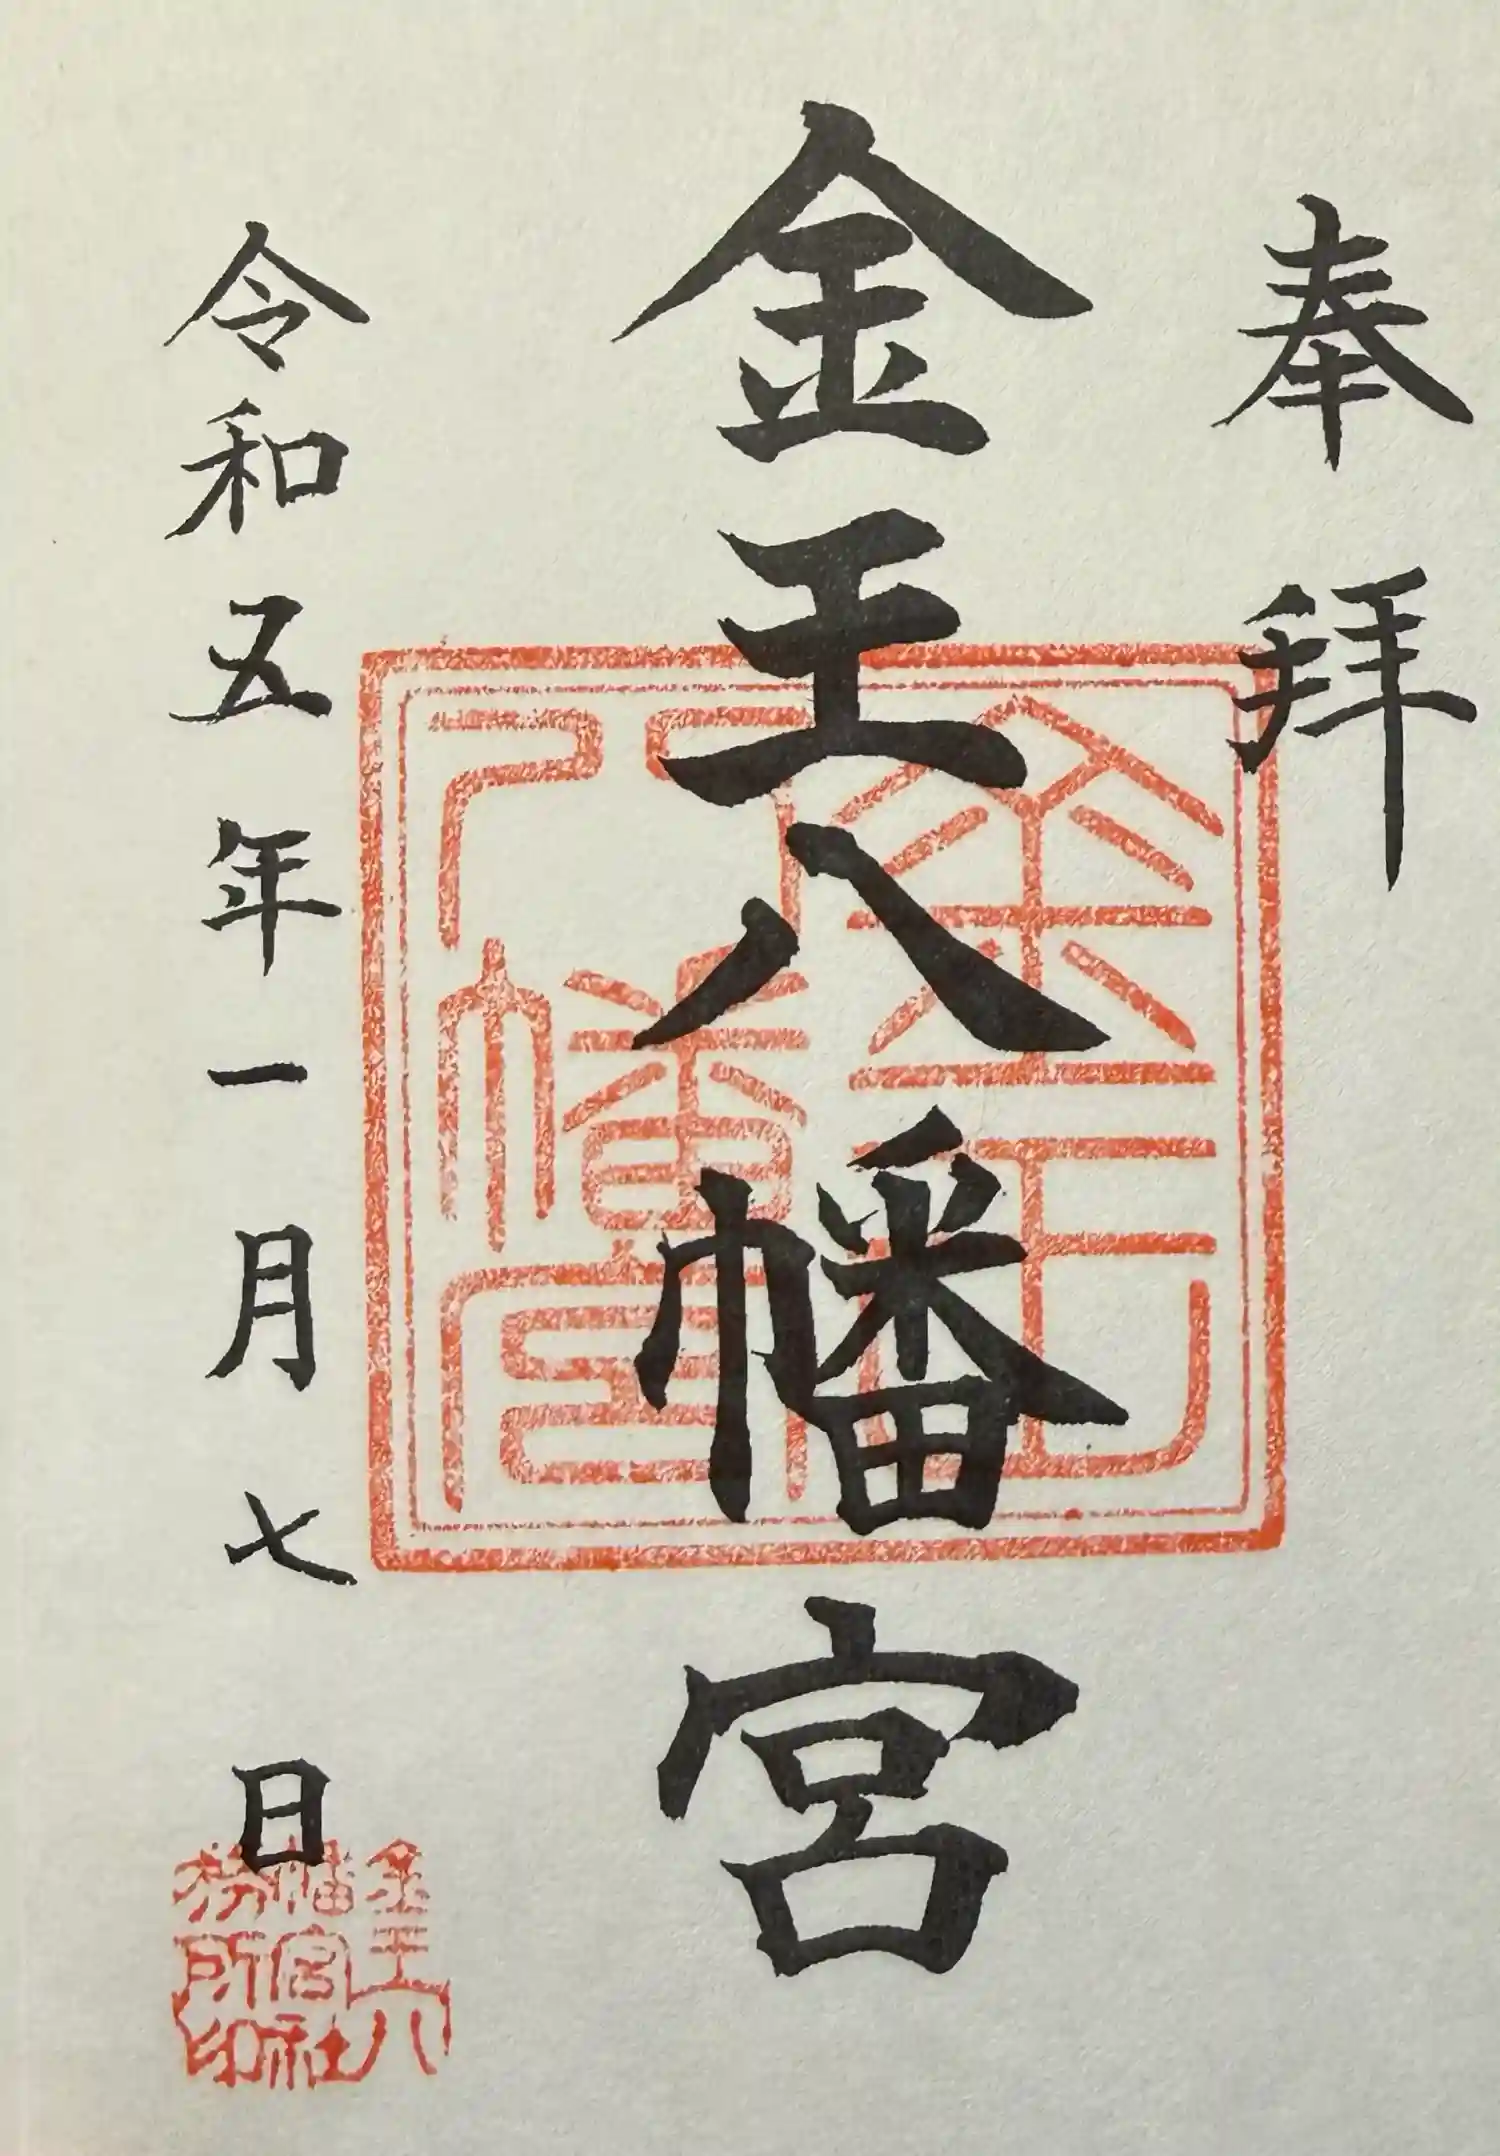 奉拝
金王八幡宮
令和五年一月七日
金王八
幡宮社
務所印